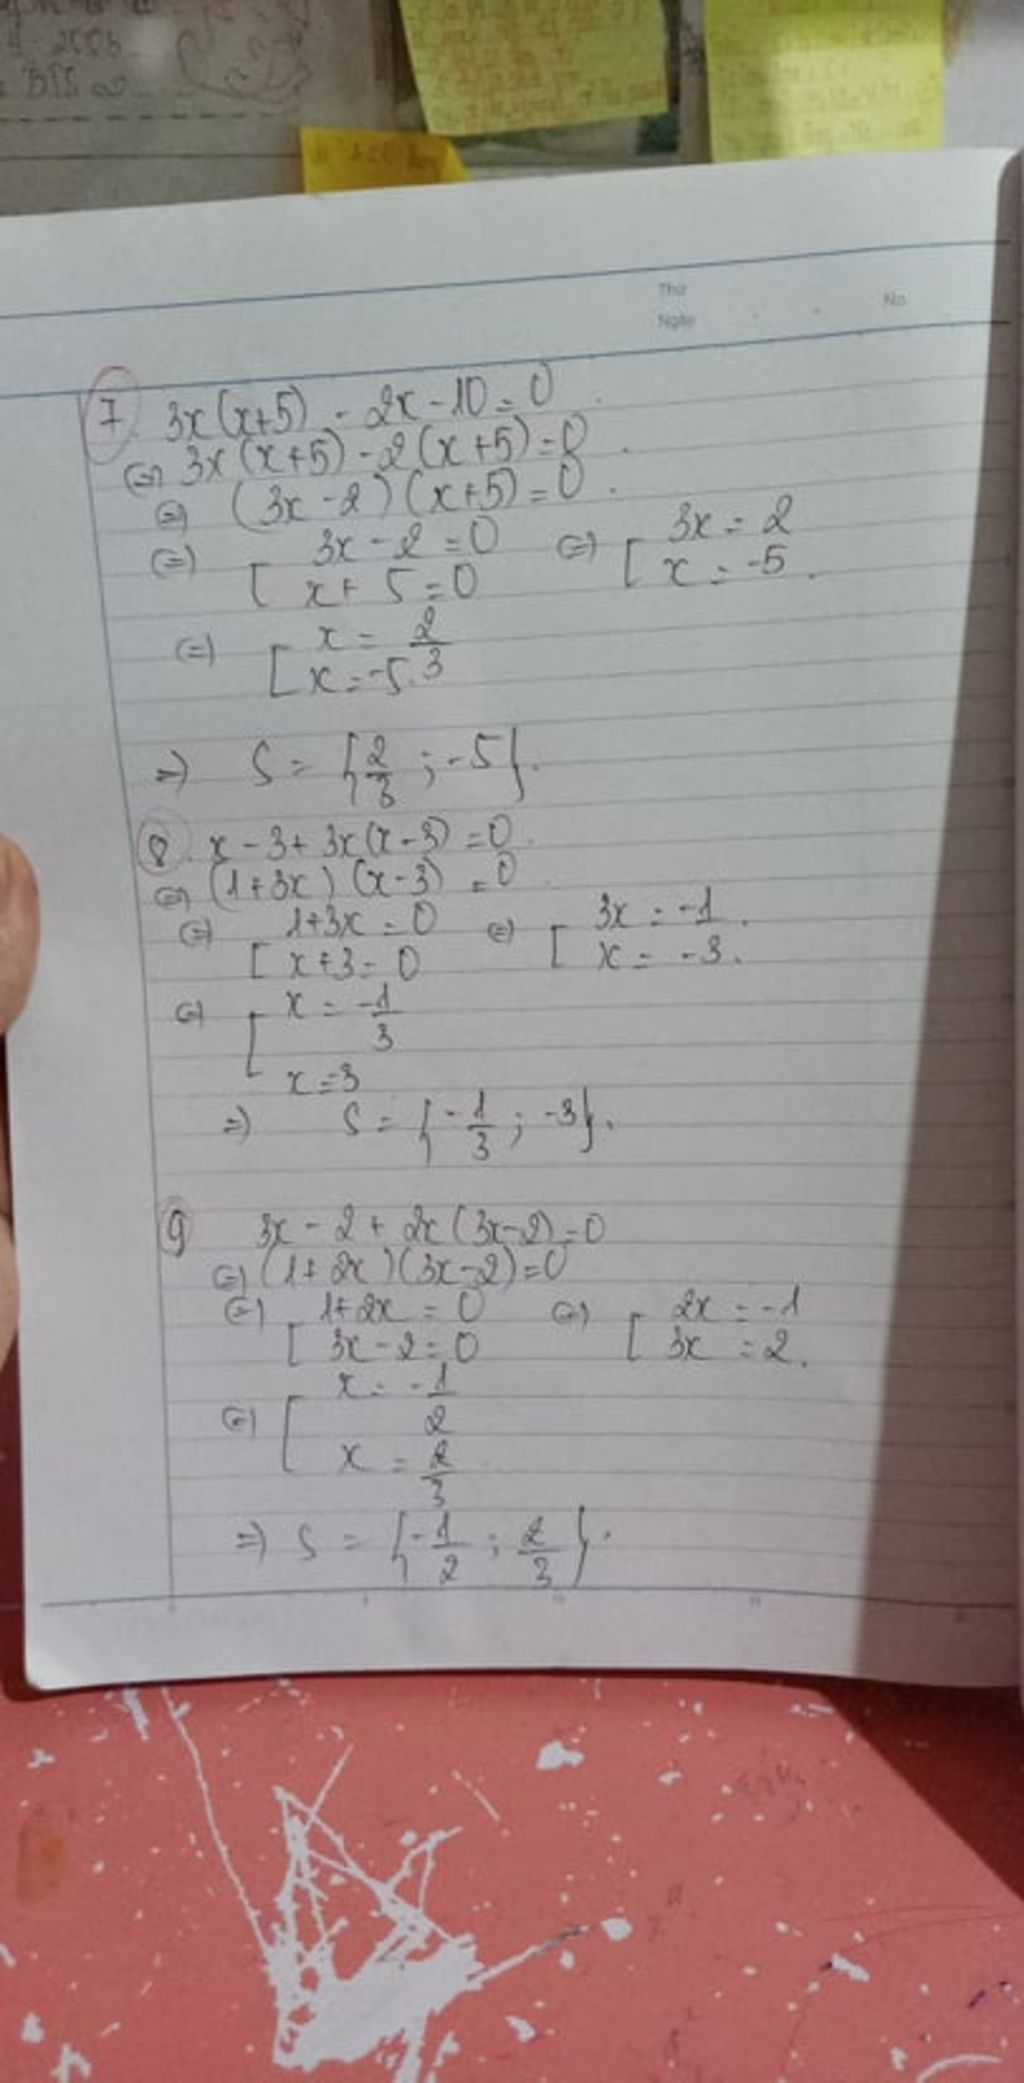 2006
BTS
Thứ
Ngày
No.
7. 3x(x+5) - 2x - 10 = 0.
(=) 3x(x+5) - 2(x+5) = 0.
(=) (3x-2)(x+5) = 0.
(=) [ 3x - 2 = 0 (=) [ 3x = 2
x + 5 = 0 x = -5.
(=) [ x = 2/3
x = -5.
=) S = {2/3 ; -5}.
8. x - 3 + 3x(x-3) = 0.
(=) (1+3x)(x-3) = 0.
(=) [ 1+3x = 0 (=) [ 3x = -1.
x+3 = 0 x = -3.
(=) [ x = -1/3
x = -3
=) S = {-1/3 ; -3}.
9 3x - 2 + 2x(3x-2) = 0
(=) (1+2x)(3x-2) = 0
(=) [ 1+2x = 0 (=) [ 2x = -1
3x - 2 = 0 3x = 2.
(=) [ x = -1/2
x = 2/3
=) S = {-1/2 ; 2/3}.